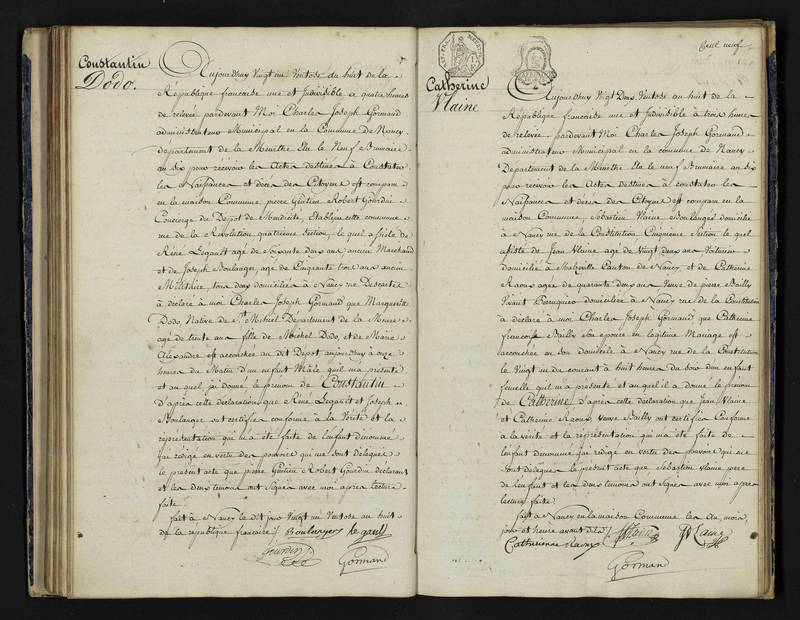 Constantin
Dodo.
Aujourd'huy vingt un Ventose an huit de la
République française une et Indivisible a quatre heures
de relevée pardevant Moi Charles Joseph Gormand
administrateur Municipal en la Commune de Nancy
département de la Meurthe Elu le Neuf Brumaire
an six pour recevoir les Actes destinés à Constater
les Naissances et décès des Citoyens est comparu
en la maison Commune, pierre Guitien Robert Gourdin
Concierge du Depot de Mendicité, Etabli en cette commune
rue de la Révolution quatrième section, le quel assisté de
Réné Legault agé de soixante deux ans ancien Marchand
et de Joseph Boulanger, agé de Cinquante trois ans ancien
Militaire, tous deux domiciliés à Nancy rue Descartes
à déclaré à moi Charles Joseph Gormand que Marguerite
Dodo, Native de St Mihiel Departement de la Meuse
agée de trente ans fille de Michel Dodo, et de Marie
Alexandre est accouchée au dit Depot, aujourd'huy à onze
heures du Matin d'un enfant Mâle quil m'a présenté
et au quel jai donné le prenom de Constantin
D'après cette déclaration que Réné Legault et Joseph
Boulanger ont certifiée conforme à la Vérité et la
representation qui m'a été faite de l'enfant dénommé
jai rédigé en vertu des pouvoirs qui me sont délégués
le présent acte que pierre Guitien Robert Gourdin déclarant
et les deux temoins ont signés avec moi après lecture
faite.
fait à Nancy le dit jour vingt un Ventose an huit
de la république française / Boulanger le gault
Gourdin
Gormand
Catherine
Vlaine
Aujourd'huy vingt Deux Ventose an huit de la
République française une et Indivisible à trois heures
de relevée pardevant Moi Charles Joseph Gormand
administrateur Municipal en la commune de Nancy
Departement de la Meurthe Elu le neuf Brumaire an six
pour recevoir les Actes destinés à constater les
Naissances et décès des Citoyens est comparu en la
maison Commune, Sebastien Vlaine Boulanger domicilié
à Nancy rue de la Constitution Cinquième Section le quel
assisté de Jean Vlaine agé de Vingt deux ans Voiturier
domicilié à Canton de Nancy, et de Catherine
Raoux agée de quarante deux ans Veuve de pierre Bailly
Vivant Perruquier domiciliée à Nancy rue de la Constitution
à déclaré à moi Charles Joseph Gormand que Catherine
françoise Bailly son epouse en légitime Mariage est
accouchée en son domicile à Nancy rue de la Constitution
le vingt un du courant à huit heures du soir d'un enfant
femelle quil m'a présenté et au quel il a donné le prénom
de Catherine d'après cette déclaration que Jean Vlaine
et Catherine Raoux veuve Bailly ont certifiée Conforme
à la vérité et la représentation qui m'a été faite de
l'enfant dénommé jai rédigé en vertu des pouvoirs qui me
sont délégués le présent acte que Sebastien Vlaine pere
de l'enfant et les deux temoins ont signés avec moi après
lecture faite.
fait à Nancy en la maison Commune les an, mois,
jour et heure avant dits /
Catherienne
Gormand